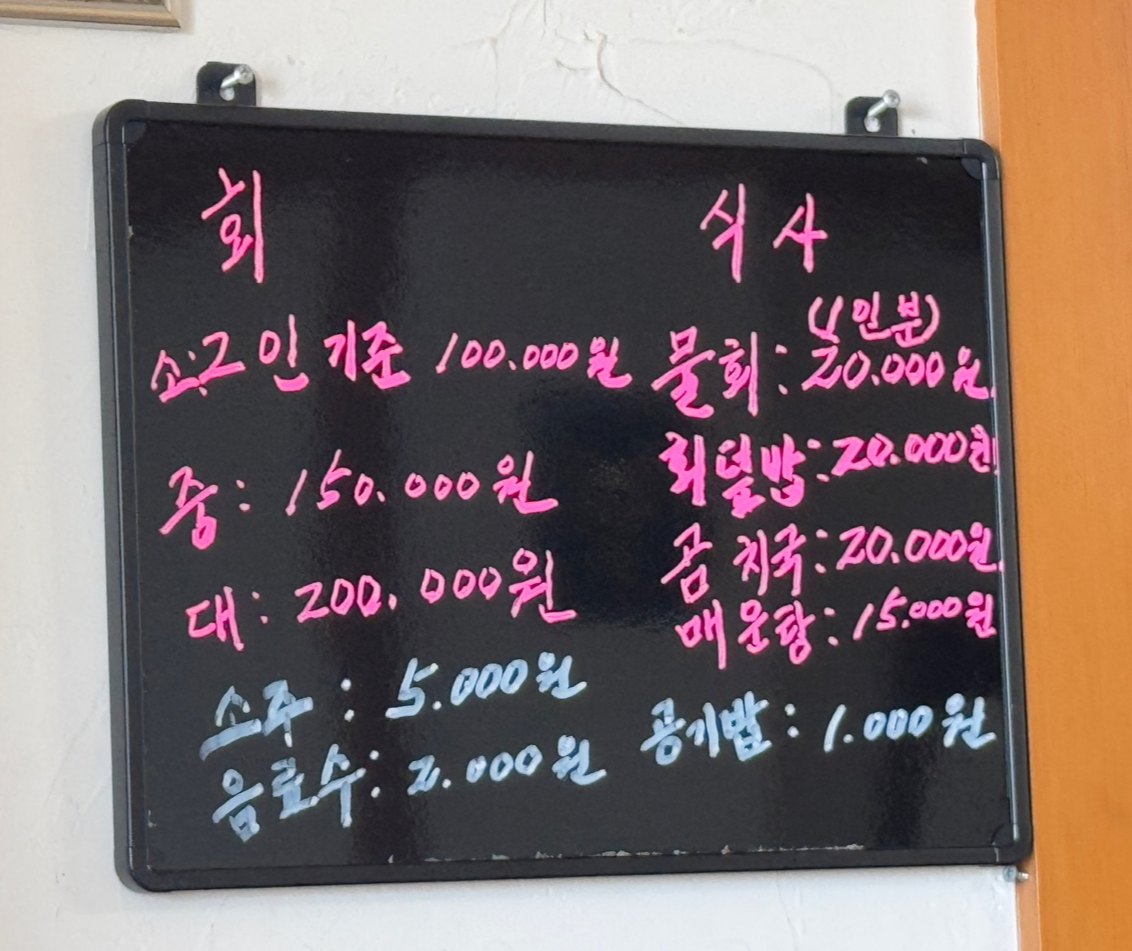 회
소:2인 기준 100.000원
중: 150.000원
대: 200.000원
소주 : 5.000원
음료수: 2.000원
식사
(1인분)
물회: 20.000원
회덮밥: 20.000원
곰치국: 20.000원
매운탕: 15.000원
공기밥: 1.000원